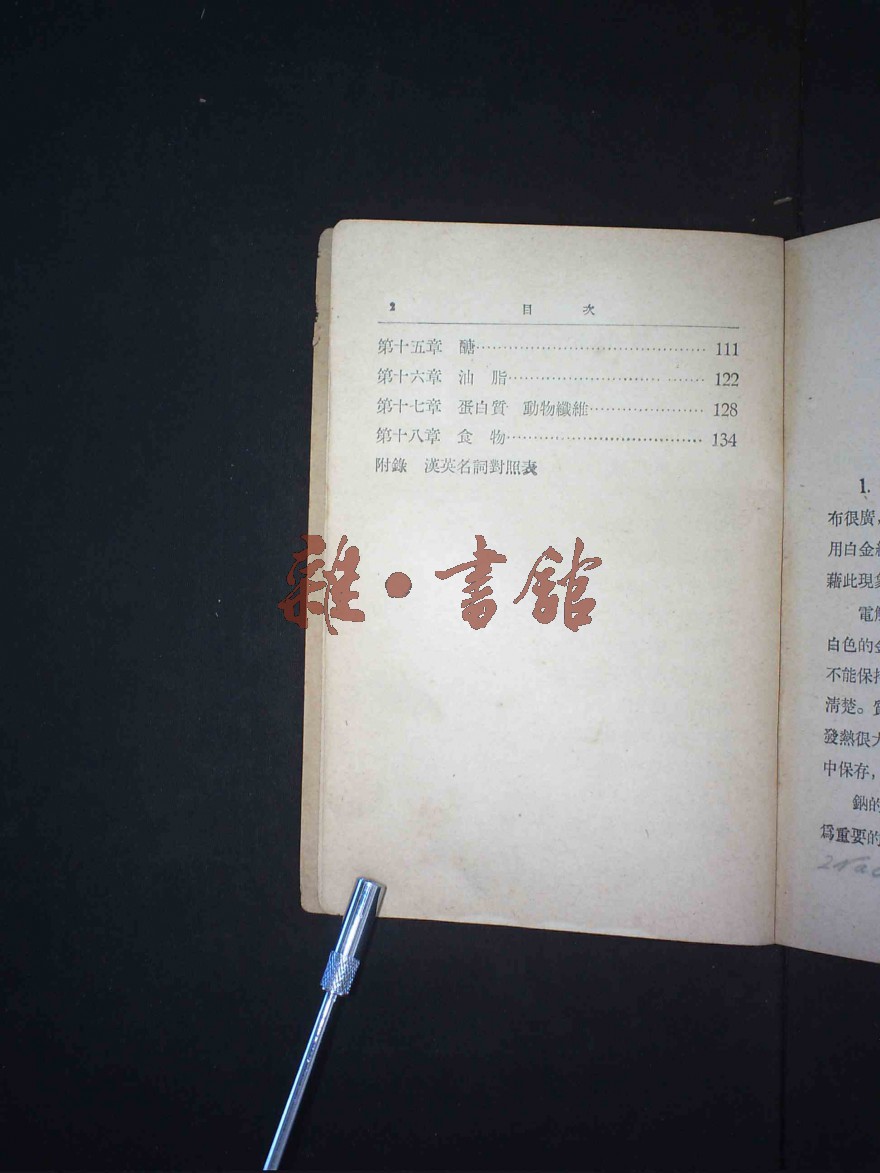 2 目 次
第十五章 醣 111
第十六章 油 脂 122
第十七章 蛋白質 動物纖維 128
第十八章 食 物 134
附錄 漢英名詞對照表
雜·書館
1.
布很廣，
用白金
藉此現象
電解
白色的金
不能保持
清楚。
發熱很大
中保存，
鈉的
爲重要的